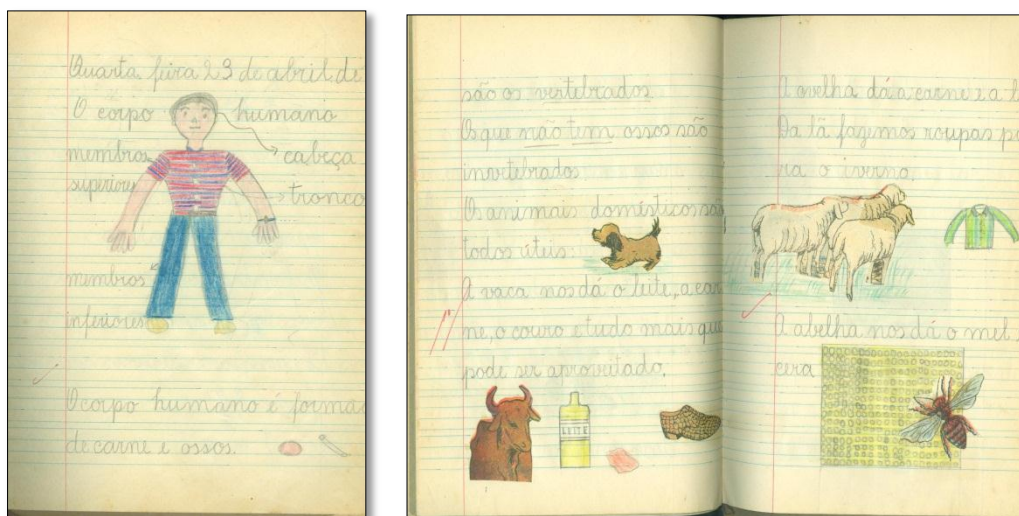 Quarta feira 23 de abril de
O corpo humano
membros
cabeça
superiores
tronco
membros
inferiores
O corpo humano é forma
de carne e ossos.
são os vertebrados
Os que não tem ossos são
invertebrados
Os animais domésticos são
todos úteis:
A vaca nos dá o leite, a car
ne, o couro e tudo mais que
pode ser aproveitado.
LEITE
A ovelha dá a carne e a l
Da lã fazemos roupas pa
ra o iverno.
A abelha nos dá o mel,
cera